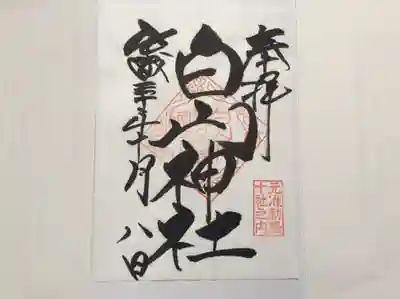 奉拝
白山神社
十月八日
元准勅祭
十社之内